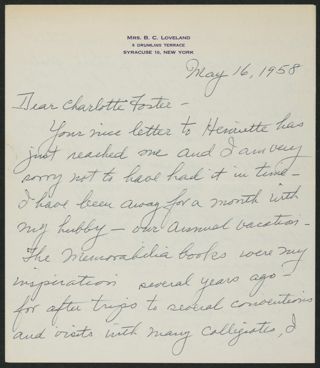 MRS. B. C. LOVELAND
DRUMLINS TERRACE
SYRACUSE 10, NEW YORK
May 16, 1958
Dear Charlotte Foster -
Your nice letter to Henriette has
just reached me and I am very
sorry not to have had it in time -
I have been away for a month with
my hubby - our annual vacation.
The Memorabilia books were my
inspiration several years ago -
for after trips to several conventions
and visits with many collegiates, I